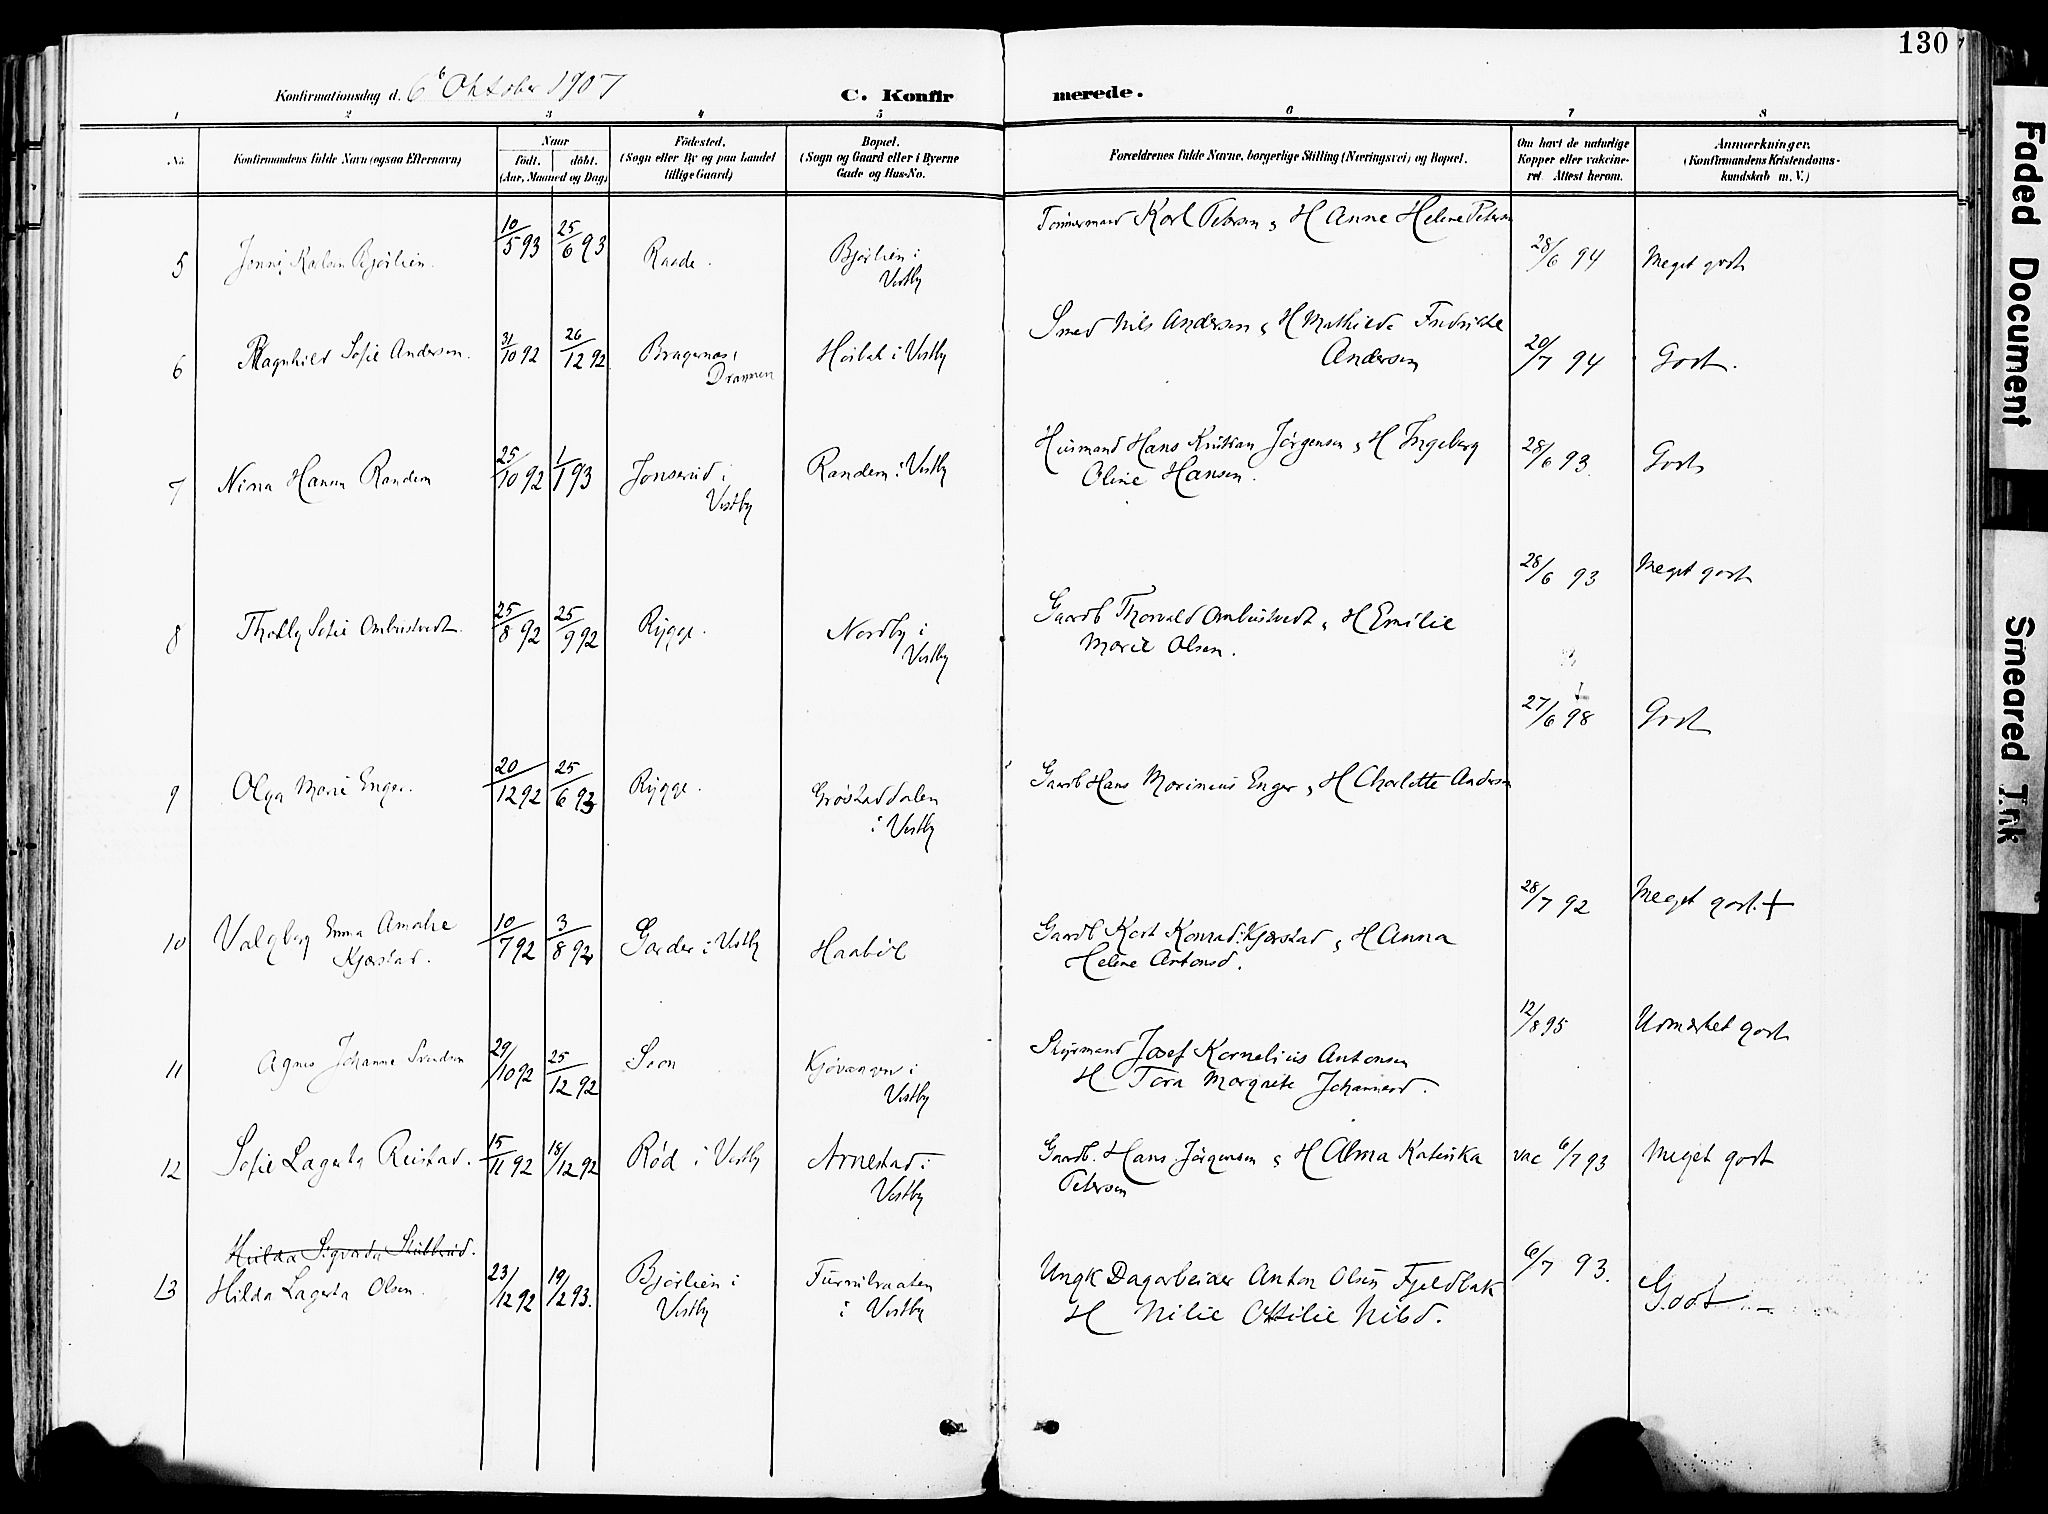 130
Konfirmationsdag d. 6 Oktober 1907
C. Konfir merede.
1 2 3 4 5 6 7 8
No.
Konfirmandens fulde Navn (ogsaa Efternavn)
Naar
födt. döbt.
(Aar, Maaned og Dag)
Födested.
(Sogn eller By og paa Landet
tillige Gaard)
Bopæl.
(Sogn og Gaard eller i Byerne
Gade og Hus-No.
Forældrenes fulde Navne, borgerlige Stilling (Næringsvei) og Bopæl.
Om havt de naturlige
Kopper eller vakcine-
ret. Attest herom.
Anmærkninger.
(Konfirmandens Kristendoms-
kundskab m. V.)
5 Jenny Karlsen Bjørlien. 10/5 93 25/6 93 Raade. Bjørlien i
Vestby
Tømmermand Karl Petersen & H Anne Helene Petersen
28/6 94 Meget godt
6 Ragnhild Sofie Andersen. 31/10 92 26/12 92 Bragernes,
Drammen
Høibak i Vestby
Smed Nils Andersen & H Mathilde Fredrikke
Andersen
20/7 94 Godt.
7 Nina Hansen Randem 25/10 92 1/1 93 Jonserud i
Vestby
Randem i Vestby
Husmand Hans Kristian Jørgensen & H Ingeborg
Oline Hansen.
28/6 93 Godt
8 Tholly Sofie Ombustvedt. 25/8 92 25/9 92 Rygge. Nordby i
Vestby
Gaardb Thorvald Ombustvedt & H Emilie
Marie Olsen.
28/6 93 Meget godt
9 Olga Marie Enger. 20/12 92 25/6 93 Rygge. Grøstaddalen
i Vestby
Gaardb Hans Marinius Enger & H Charlotte Andersen
27/6 98 Godt
10 Valgberg Emma Amalie
Kjærstad.
10/7 92 3/8 92 Garder i Vestby Haabøl
Gaardb Kort Konrad Kjærstad & H Anna
Helene Antonsd.
28/7 92 Meget godt. +
11 Agnes Johanne Svendsen 29/10 92 25/12 92 Soon Kjøvangen i
Vestby
Styrmand Josef Kornelius Antonsen
H Tora Margrete Johannesd.
12/8 95 Udmærket godt
12 Sofie Lagerta Reistad. 15/11 92 18/12 92 Rød i Vestby Arnestad i
Vestby
Gaardb. Hans Jørgensen & H Alma Katinka
Petersen
vac 6/7 93 Meget godt
Hilda Sigvarda Skubberud.
13 Hilda Lagerta Olsen. 23/12 92 19/2 93. Bjørlien i
Vestby
Furmibraaten
i Vestby
Ungk Dagarbeider Anton Olsen Fjeldbak
H Nilie Ottilie Nilsd.
6/7 93. Godt
Faded Document
Smeared Ink